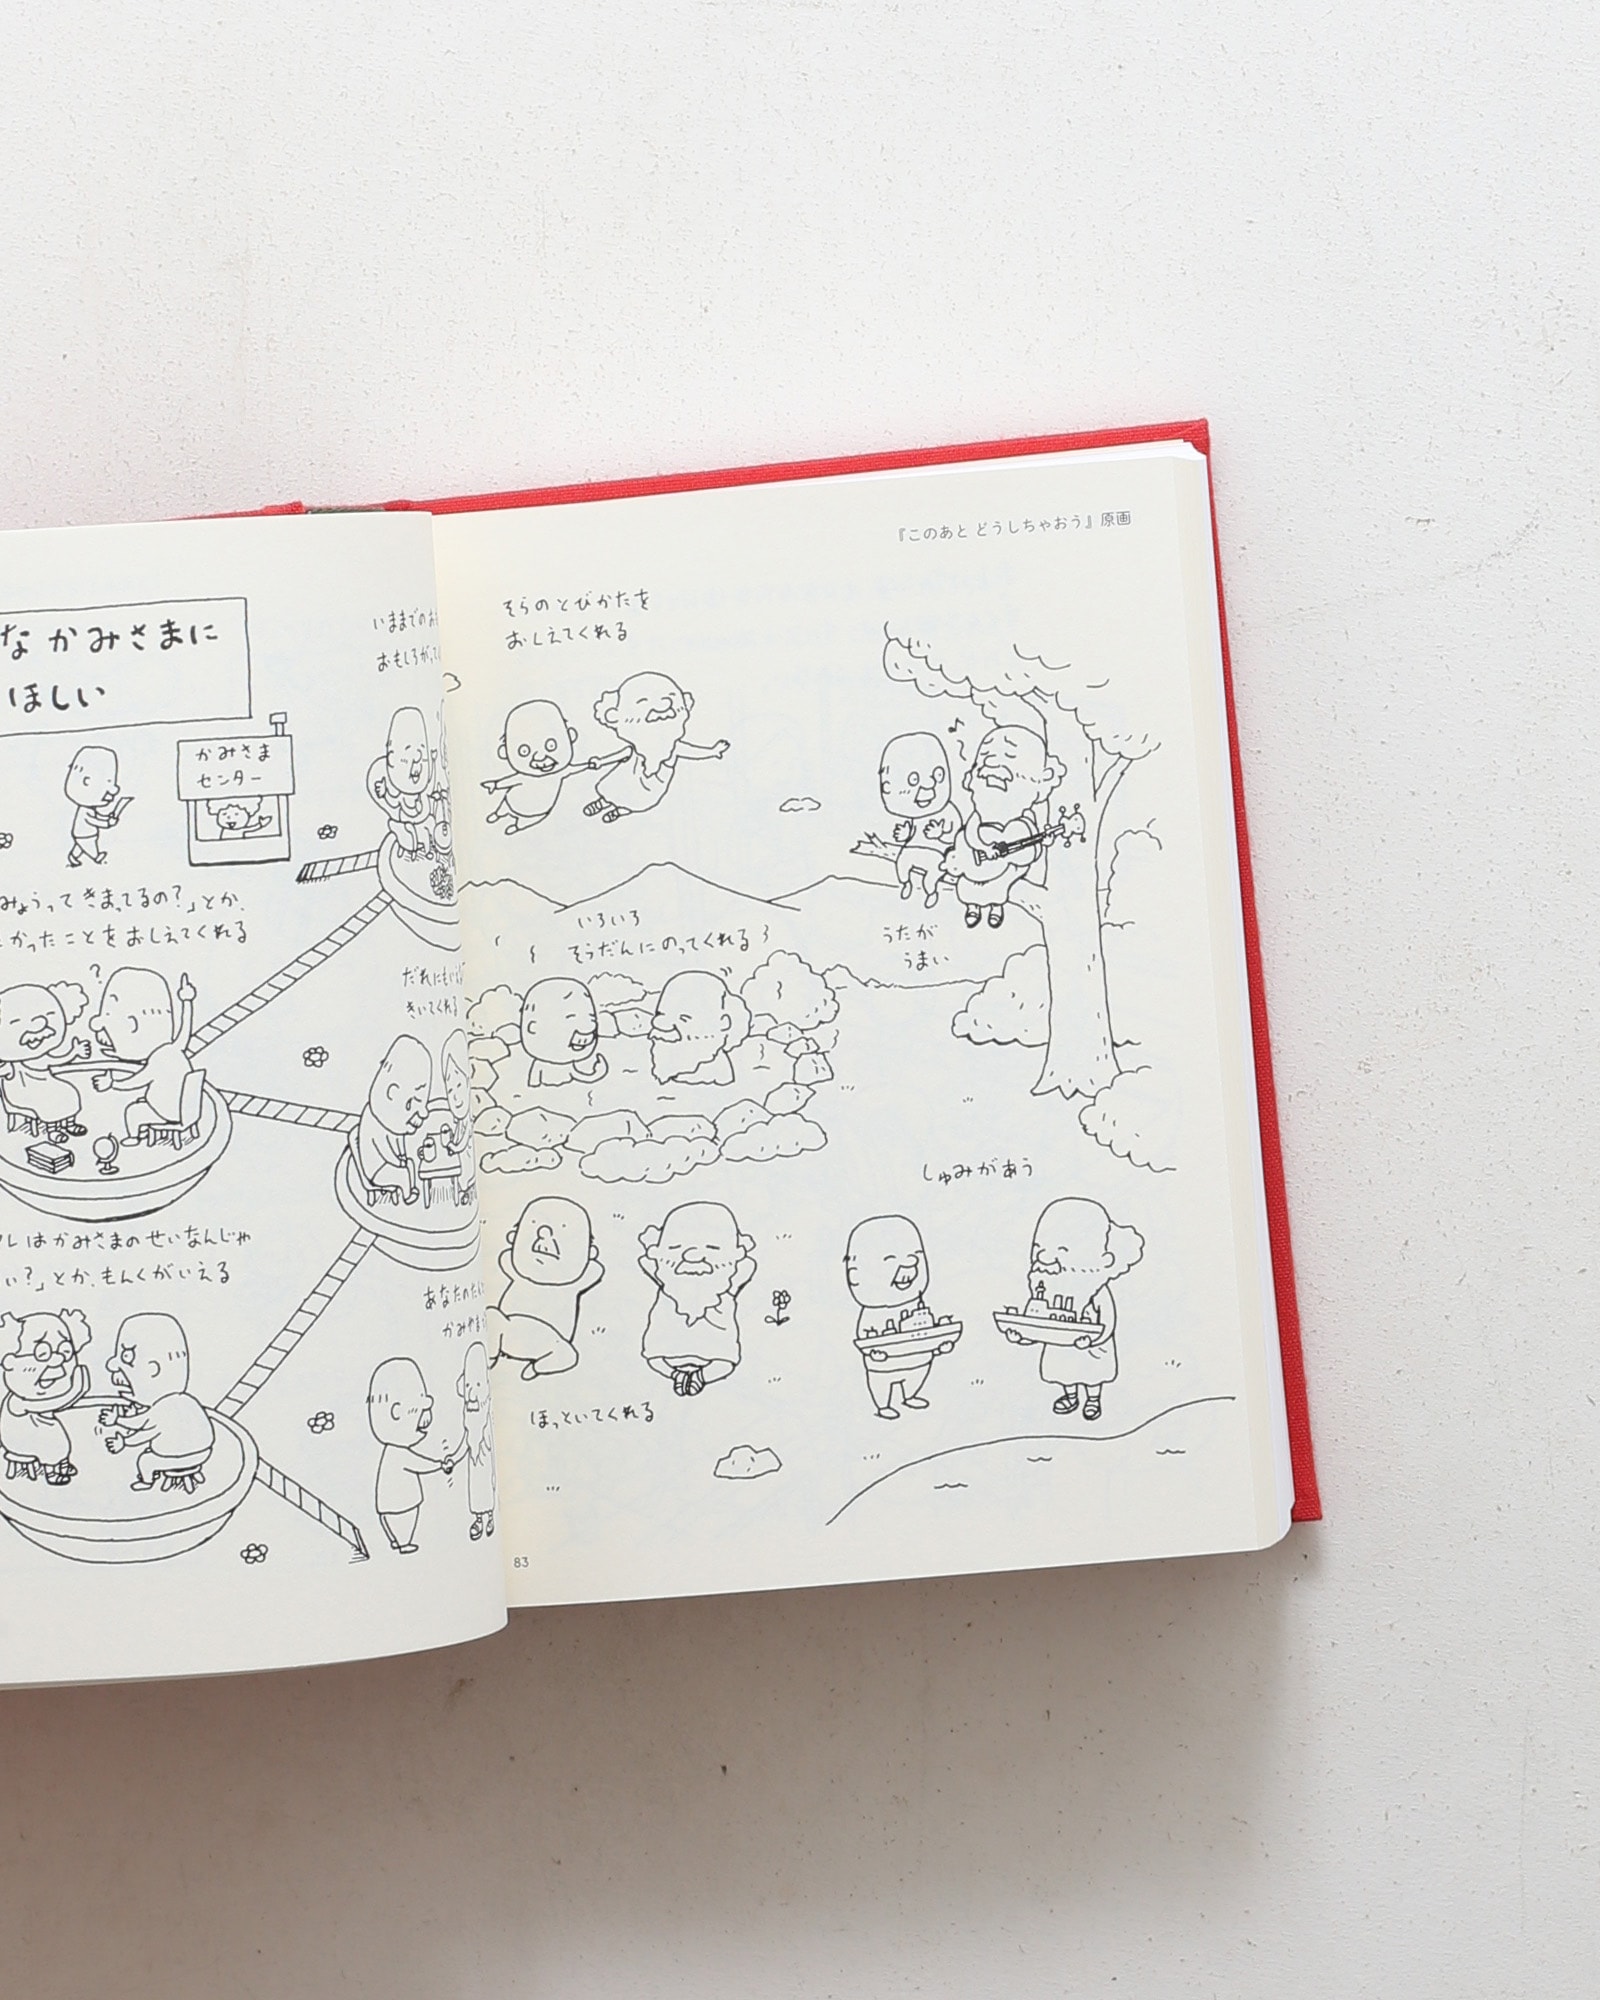 な かみさまに
ほしい
かみさま
センター
みょうって きまってるの?」とか、
かったことを おしえてくれる
はかみさまのせいなんじゃ
い?」とか、もんくがいえる
いままでの
おもしろがって
だれにも
きいてくれる
あなたの
『このあと どうしちゃおう』原画
そらのとびかたを
おしえてくれる
いろいろ
そうだんにのってくれる
うたが
うまい
しゅみがあう
ほっといてくれる
83